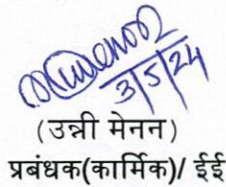 3/5/24
(उन्नी मेनन)
प्रबंधक(कार्मिक)/ ईई